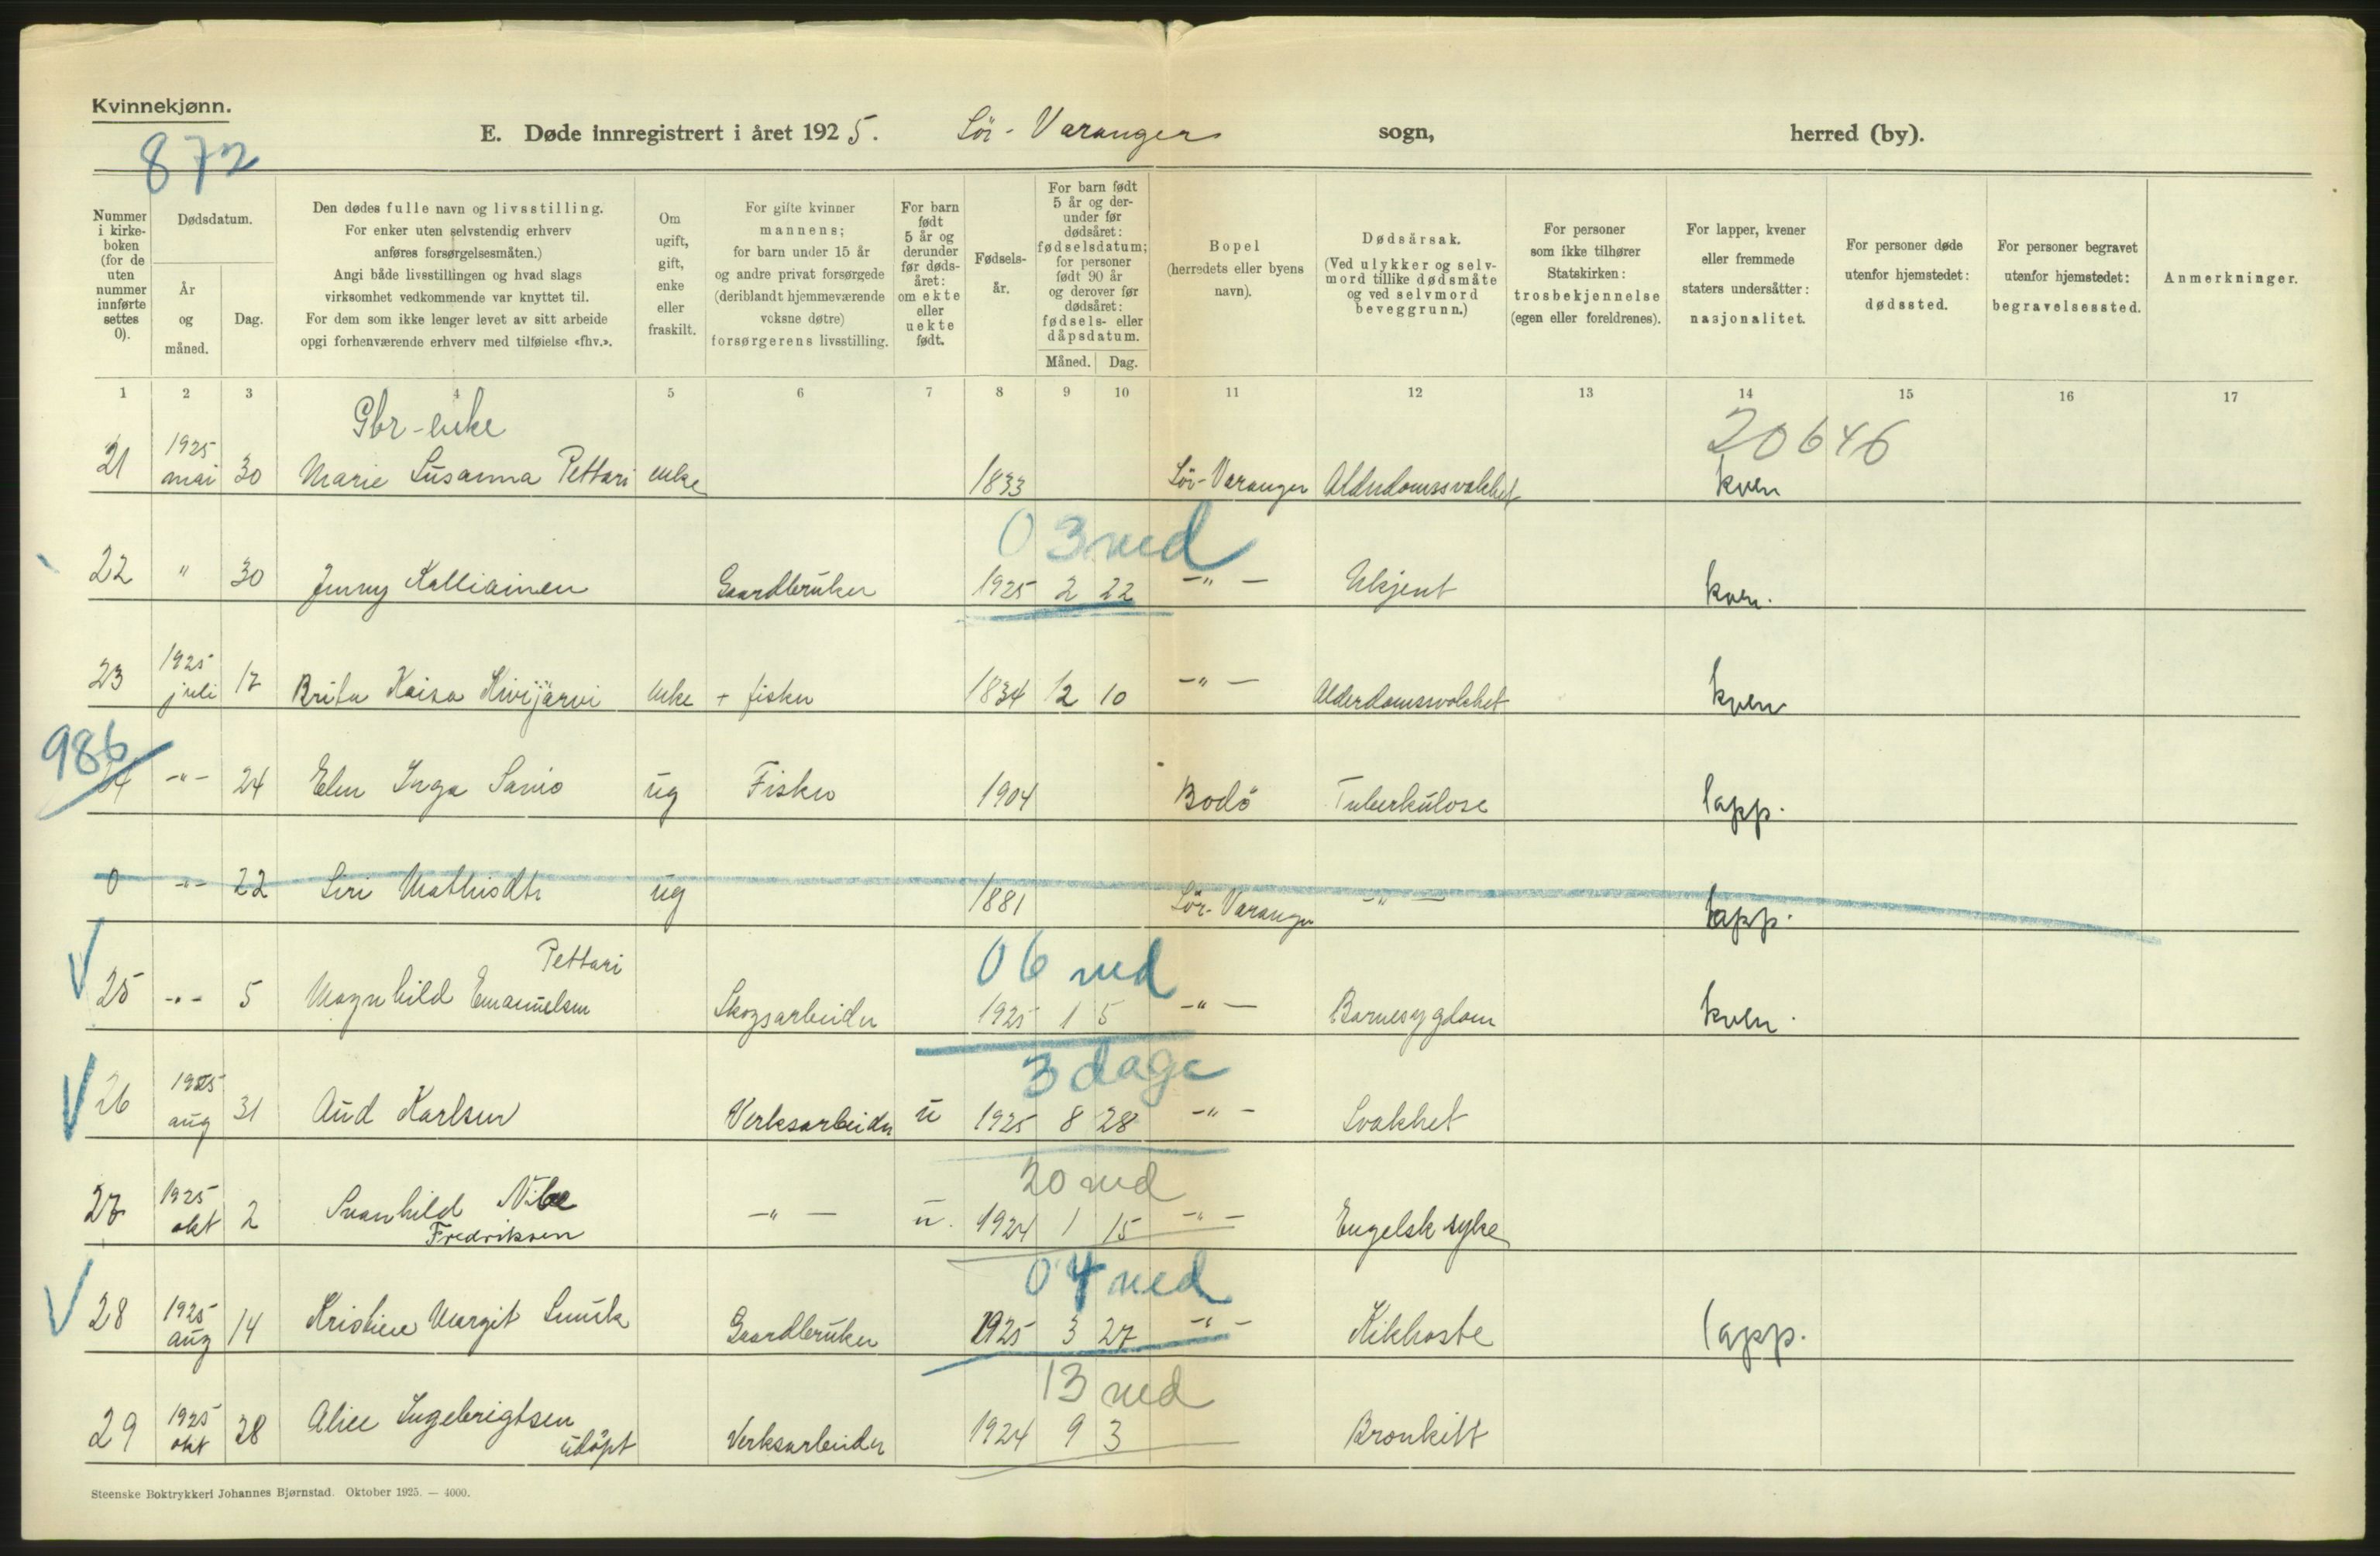 Kvinnekjønn.
872
E. Døde innregistrert i året 1925. Sör-Varanger sogn, herred (by).
Nummer i kirke-boken (for de uten nummer innførte settes 0).
Dødsdatum.
År og måned.
Dag.
Den dødes fulle navn og livsstilling.
For enker uten selvstendig erhverv
anføres forsørgelsesmåten.)
Angi både livsstillingen og hvad slags
virksomhet vedkommende var knyttet til.
For dem som ikke lenger levet av sitt arbeide
opgi forhenværende erhverv med tilføielse «fhv.».
Om ugift, gift, enke eller fraskilt.
For gifte kvinner
mannens;
for barn under 15 år
og andre privat forsørgede
(deriblandt hjemmeværende
voksne døtre)
forsørgerens livsstilling.
For barn født 5 år og derunder før døds-året: om ekte eller uekte født.
Fødsels-år.
For barn født 5 år og der-under før dødsåret: fødselsdatum; for personer født 90 år og derover før dødsåret: fødsels- eller dåpsdatum.
Måned. Dag.
Bopel
(herredets eller byens
navn).
Dødsårsak.
(Ved ulykker og selv-
mord tillike dødsmåte
og ved selvmord
beveggrunn.)
For personer
som ikke tilhører
Statskirken:
trosbekjennelse
(egen eller foreldrenes).
For lapper, kvener
eller fremmede
staters undersåtter:
nasjonalitet.
For personer døde
utenfor hjemstedet:
dødssted.
For personer begravet
utenfor hjemstedet:
begravelsessted.
Anmerkninger.
1 2 3 4 5 6 7 8 9 10 11 12 13 14 15 16 17
Gbr-enke
20646
21 1925 mai 30 Marie Susanna Pettari enke 1833 Sör-Varanger Alderdomssvakhet kven
0 3 md
22 " 30 Jenny Kalliainen Gaardbruker 1925 2 22 -"- Ukjent kven.
23 1925 juli 17 Brita Kaisa Kivijärvi enke + fisker 1834 12 10 -"- Alderdomssvakhet kven
986
24 -"- 24 Elen Inga Savio ug Fisker 1904 Bodö Tuberkulose lapp.
0 -"- 22 Siri Mathisdtr ug 1881 Sör-Varanger -"- lapp.
Pettari
06 md
25 -"- 5 Magnhild Emanuelsen Skogsarbeider 1925 1 5 -"- Barnesygdom kven.
3 dage
26 1925 aug 31 Aud Karlsen Verksarbeider u 1925 8 28 -"- Svakhet
20 md
27 1925 okt 2 Svanhild Nibe -"- u. 1924 1 15 -"- Engelsk syke
Fredriksen
04 md
28 1925 aug 14 Kristine Margit Smuk Gaardbruker 1925 3 27 -"- Kikhoste lapp.
13 md
29 1925 okt 28 Alice Ingebrigtsen Verksarbeider 1924 9 3 Bronkitt
udöpt
Steenske Boktrykkeri Johannes Bjørnstad. Oktober 1925. — 4000.